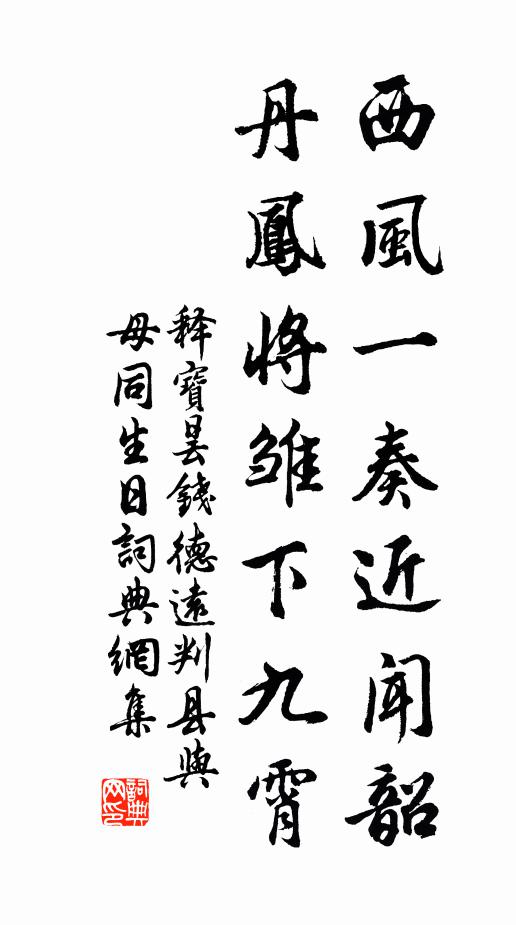 西風一奏近聞韶
丹鳳將雛下九霄
釋寶曇錢德遠判县與
母同生日詞典網集
詞典网印